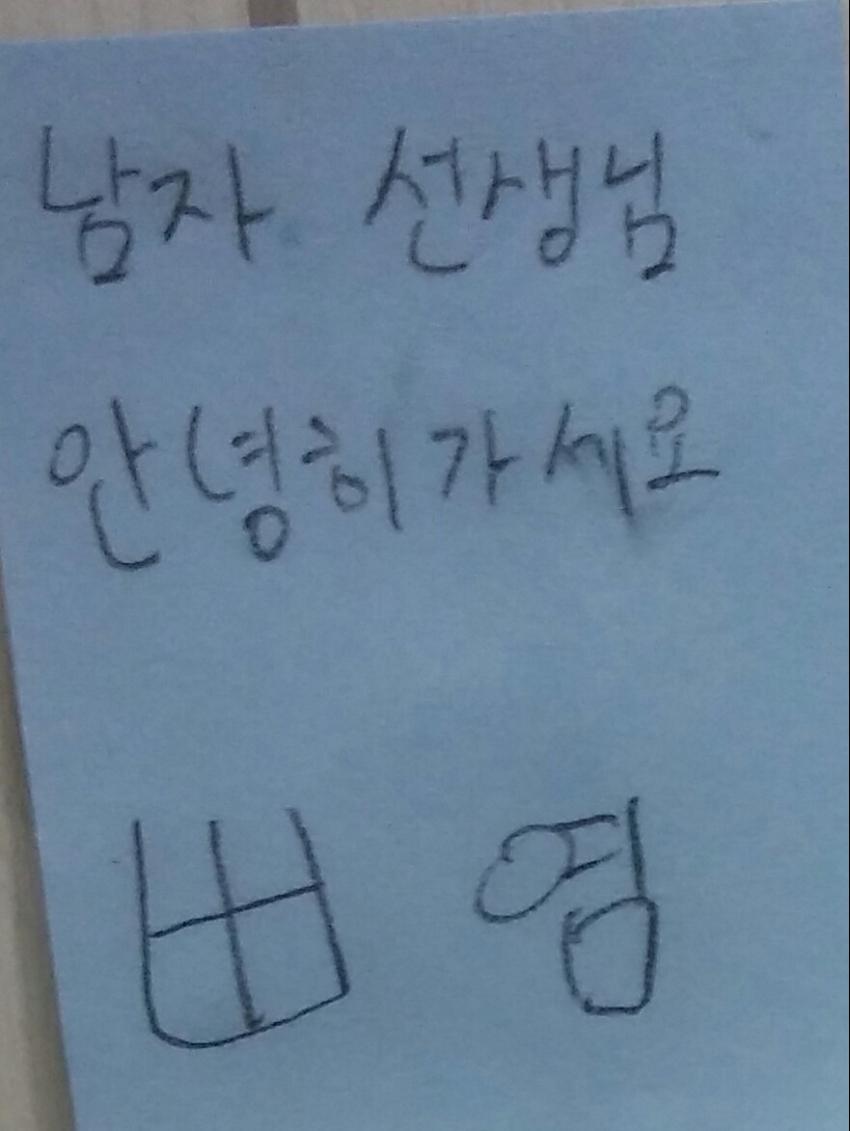 남자 선생님
안녕히가세요